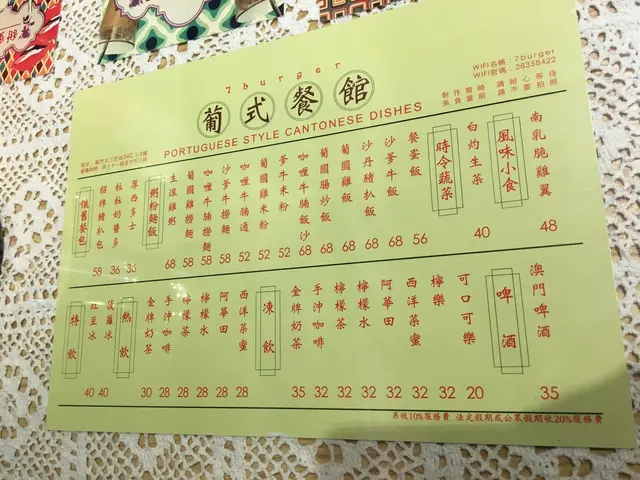 7burger
葡式餐館
PORTUGUESE STYLE CANTONESE DISHES
WIFI名稱：7burger
WIFI密碼：28358422
製作需時 請耐心等待
美食當前 請不要拍照
懷舊餐包
招牌豬扒包 58
杜杜奶醬多 36
厚西多士 33
粥粉麵飯
生滾雞粥 68
葡國雞撈麵 58
咖喱牛腩撈麵 58
沙爹牛撈麵 52
咖喱牛腩通 58
葡國雞米粉 52
沙爹牛米粉 52
咖喱牛腩飯 68
葡國腸炒飯 68
葡國雞飯 68
沙丹豬扒飯 68
沙爹牛飯 68
餐蛋飯 56
時令蔬菜
白灼生菜 40
風味小食
南乳脆雞翼 48
特飲
紅豆冰 40
菠蘿冰 40
熱飲
金牌奶茶 30
手沖咖啡 28
檸檬茶 28
檸檬水 28
阿華田 28
西洋菜蜜 28
凍飲
金牌奶茶 35
手沖咖啡 32
檸檬茶 32
檸檬水 32
阿華田 32
西洋菜蜜 32
檸樂 32
可口可樂 20
啤酒
澳門啤酒 35
另收10%服務費 法定假期或公眾假期收20%服務費